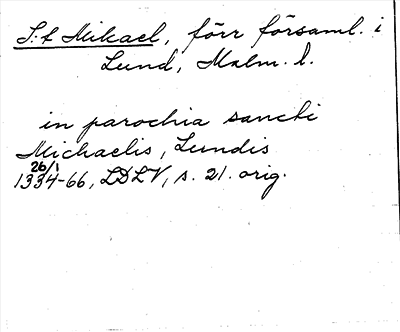 S:t Mikael, förr församl. i
Lund, Malm. l.
in parochia sancti
Michaelis, Lundis
26/1
1334-66, LDLV, s. 21. orig.